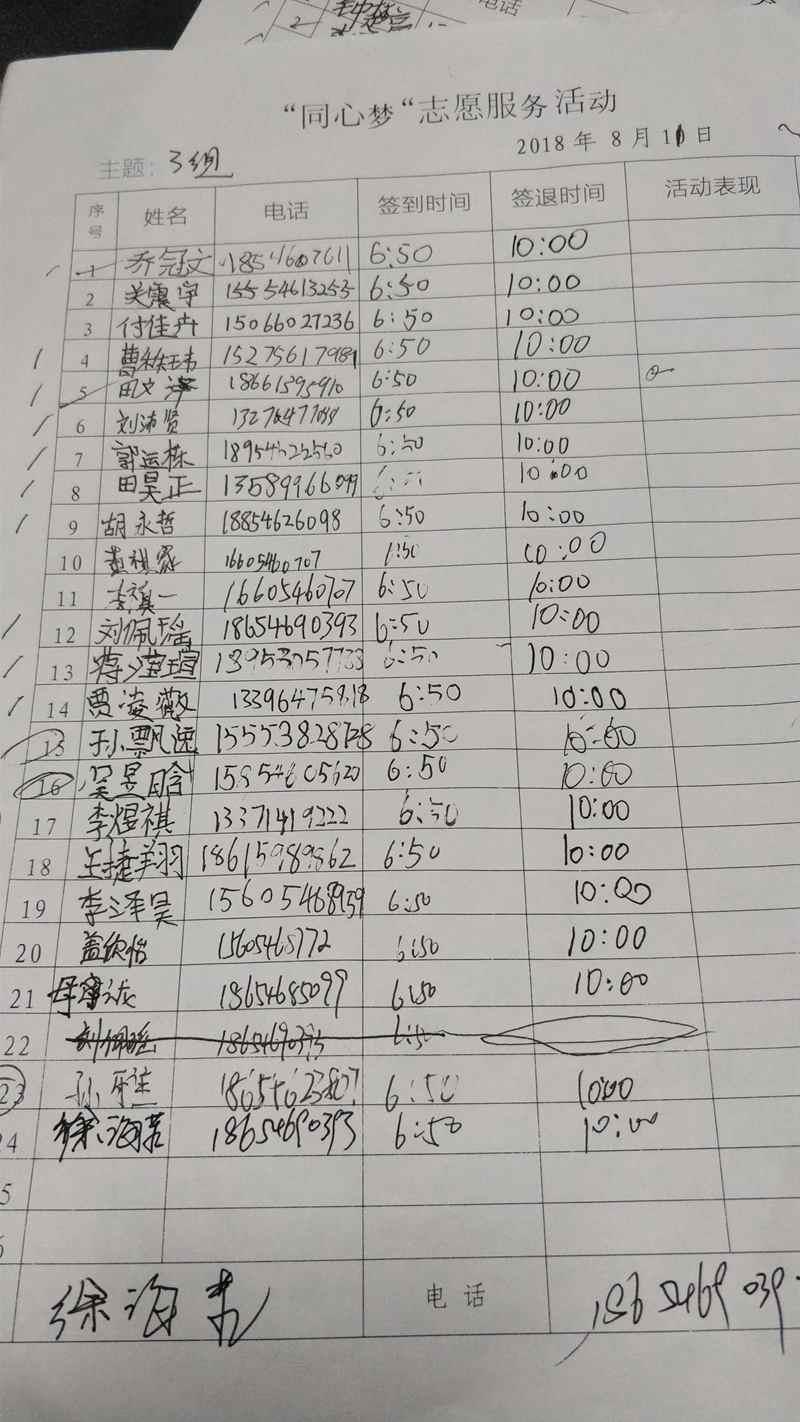 电话
2
"同心梦"志愿服务活动
2018年8月11日
主题：3组
序号 姓名 电话 签到时间 签退时间 活动表现
1 乔冠文 18541607611 6:50 10:00
2 关震宇 15554613253 6:50 10:00
3 付佳卉 15066027236 6:50 10:00
4 15275617989 6:50 10:00
5 田文 18661395910 6:50 10:00
6 刘沛贤 6:50 10:00
7 郭运栋 6:50 10:00
8 田昊正 10:00
9 胡永哲 18854626098 6:50 10:00
10 16605460707 10:00
11 李祺一 16605460707 6:50 10:00
12 刘佩瑶 18654690393 6:50 10:00
13 6:50 10:00
14 贾凌薇 13396475818 6:50 10:00
15 孙飘逸 6:50 10:00
16 吴昱晗 15954605620 6:50 10:00
17 李煜祺 13371419222 6:50 10:00
18 王捷翔 18615989862 6:50 10:00
19 李泽昊 15605468959 6:50 10:00
20 盖欣怡 6:50 10:00
21 18654685099 6:50 10:00
22 刘佩瑶 18654690393 6:50
23 孙雅 6:50 10:00
24 徐海 18654690393 6:50 10:00
5
徐海 电话 1865469039